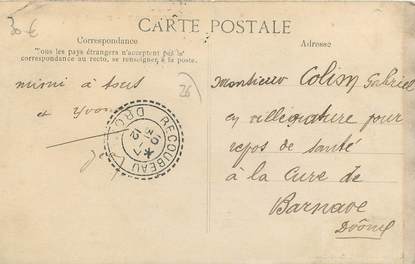 30 €
CARTE POSTALE
Correspondance
Tous les pays étrangers n'acceptent pas la
correspondance au recto, se renseigner à la poste.
Adresse
26
mimi à tous
et Yvon
RECOUBEAU
Monsieur Colism Gabriel
en villégiature pour
repos de santé
à la Cure de
Barnave
Drôme